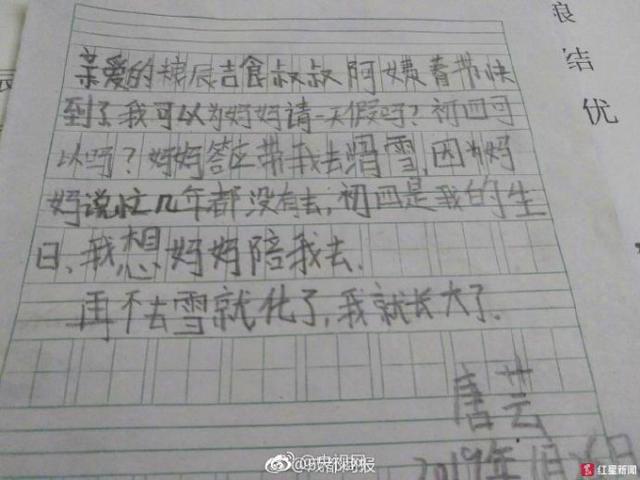 亲爱的棒辰吉食叔叔阿姨春节快
到了我可以为妈妈请一天假吗?初四可
以吗?妈妈答应带我去滑雪,因为妈
妈说忙几年都没有去,初四是我的生
日、我想妈妈陪我去.
再不去雪就化了,我就长大了.
唐芸
2019年1月26日
浪
结
优
@成都商报
央视网
红星新闻